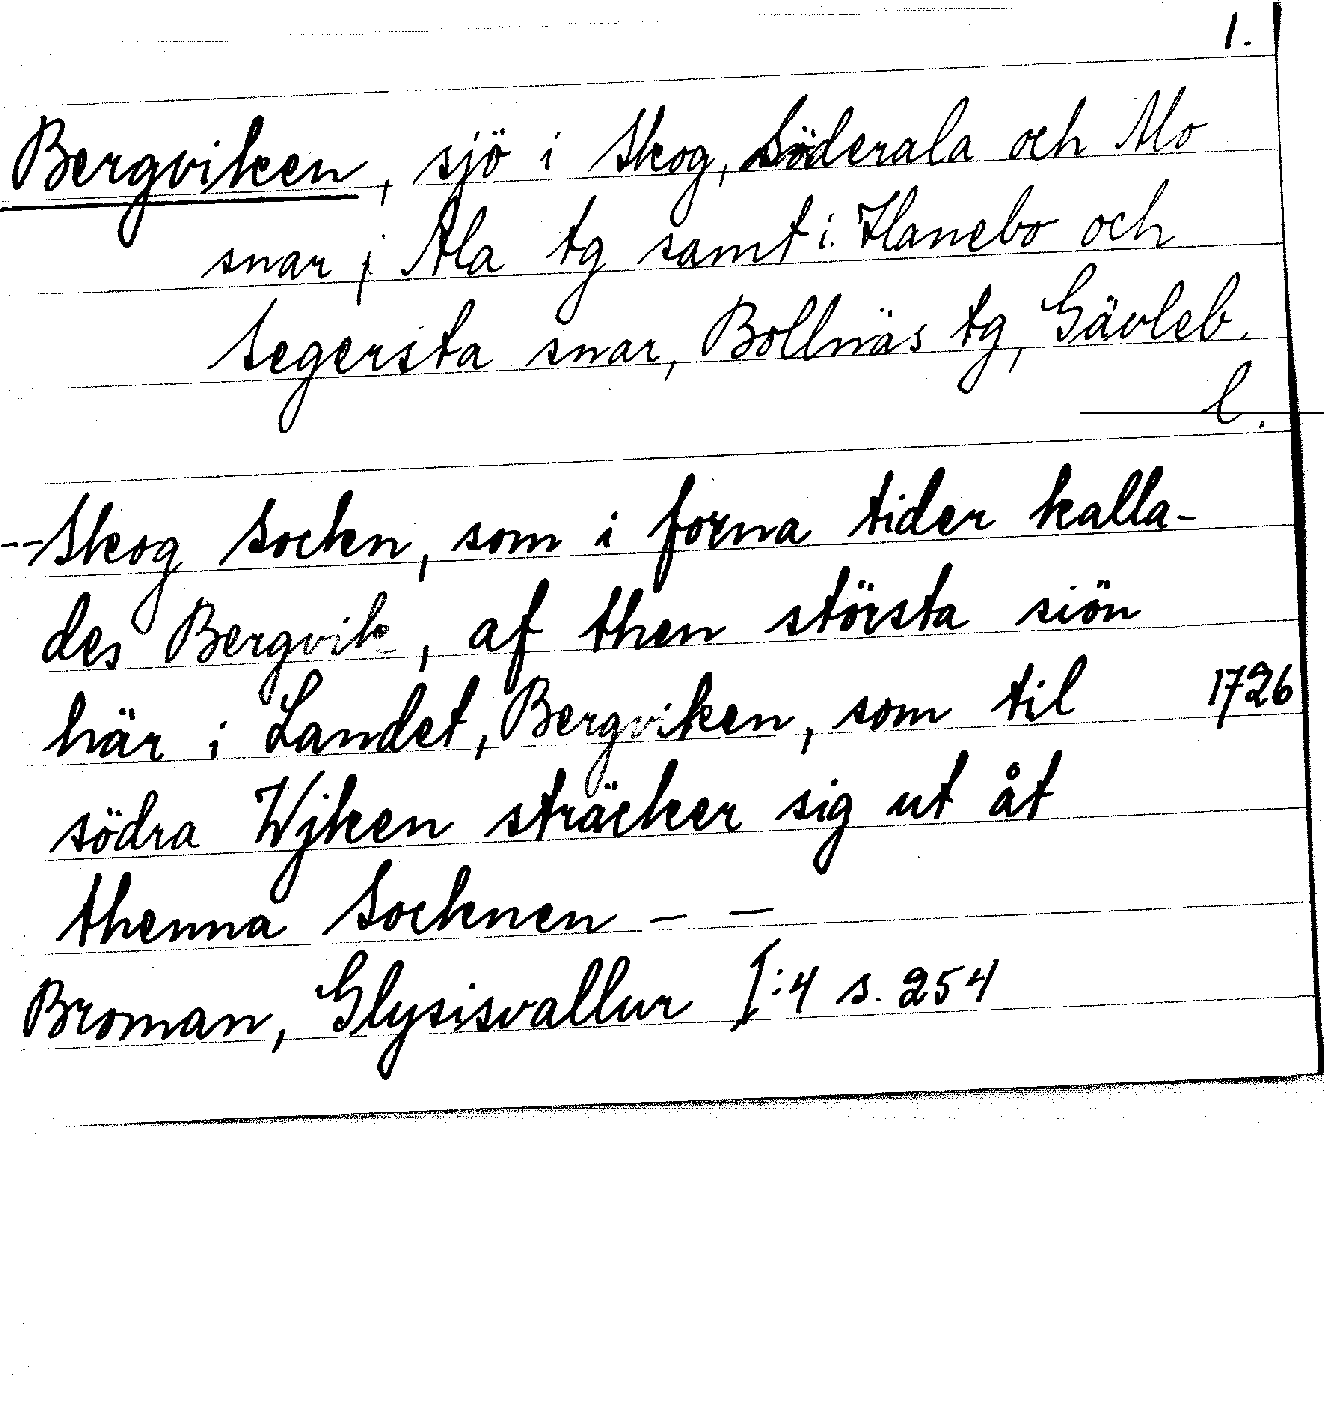 1.
Bergviken, sjö i Skog, Söderala och Mo
snar i Ala tg samt i Hanebo och
Segersta snar, Bollnäs tg, Gävleb.
l.
--Skog Sockn, som i forna tider kalla-
des Bergvik, af then största siön
här i Landet, Bergviken, som til 1726
södra Wjken sträcker sig ut åt
thenna Socknen - -
Broman, Glysisvallur I:4 s. 254